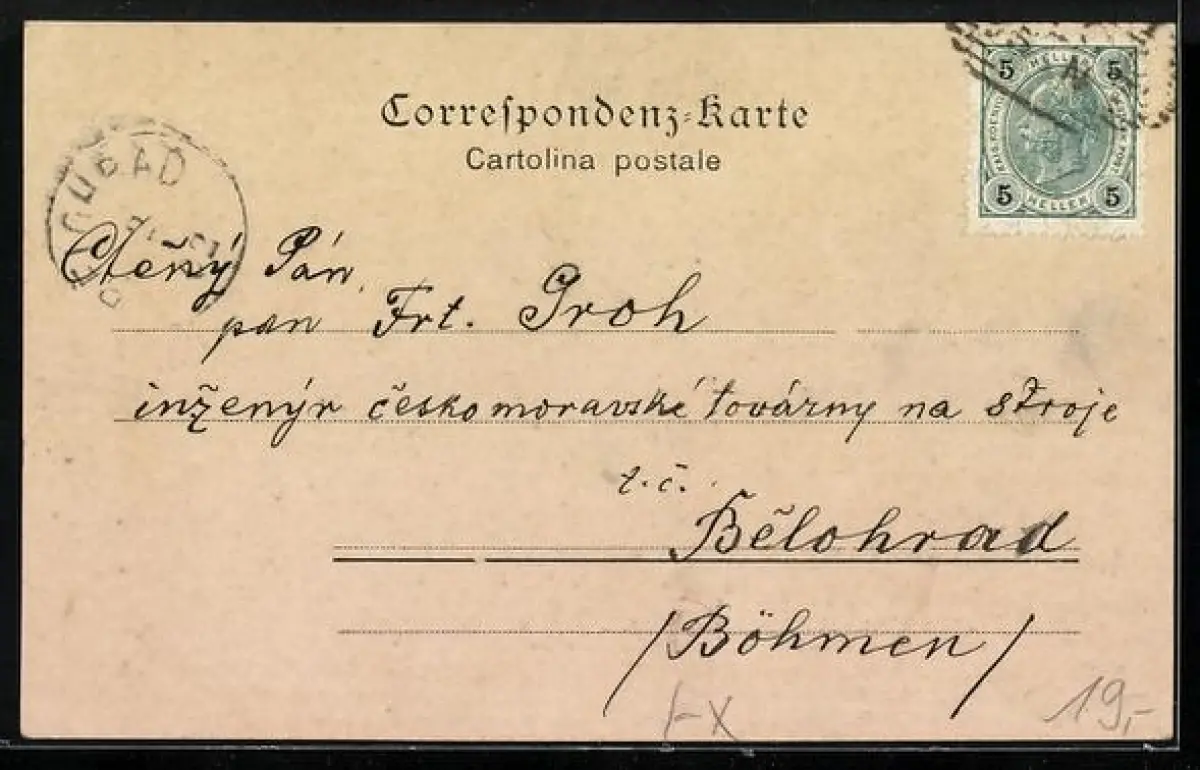 Correspondenz-Karte
Cartolina postale
5 HELLER 5
5 HELLER 5
Ctěný Pán,
pan Frt. Groh
inženýr českomoravské továrny na stroje
t.č.
Bělohrad
/Böhmen/
19,-